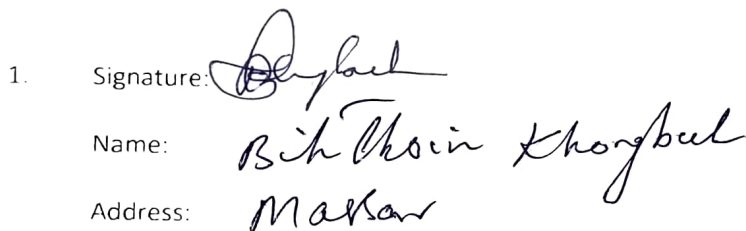 1. Signature:
Name: Bih Thoin Khongbuh
Address: Markaw